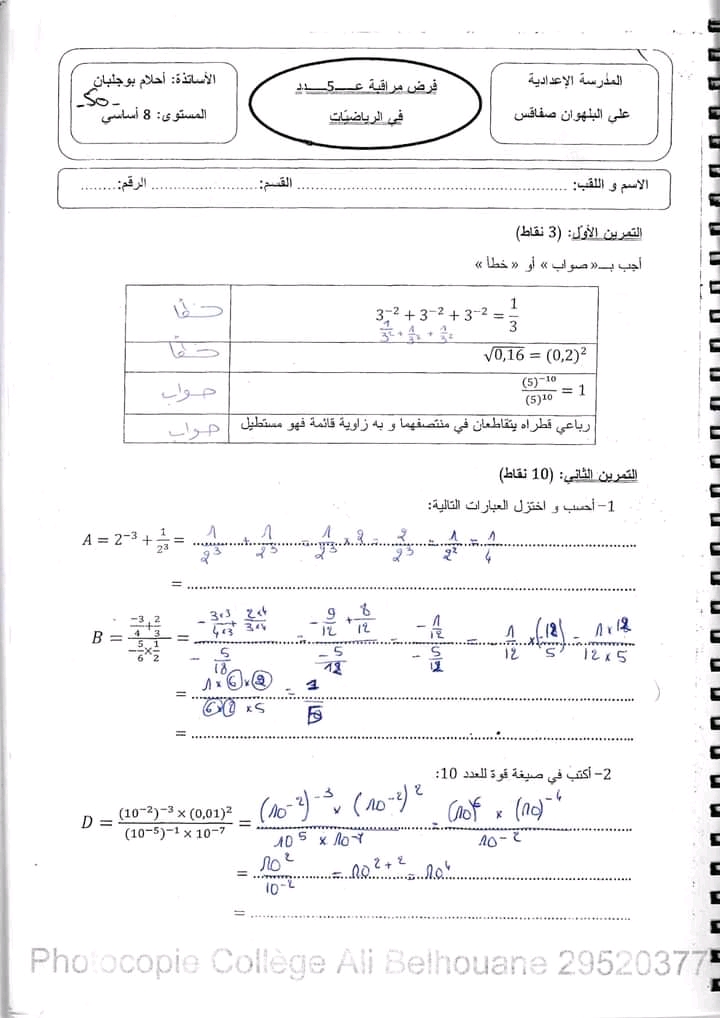 المدرسة الإعدادية
علي البلهوان صفاقس
فرض مراقبة عـــــ5ـــــدد
في الرياضيّات
الأساتذة: أحلام بوجلبان
-50-
المستوى: 8 أساسي
الاسم و اللقب: ........................ القسم: ........................ الرقم: .........
التمرين الأوّل: (3 نقاط)
أجب بــ« صواب » أو « خطأ »
3⁻² + 3⁻² + 3⁻² = 1/3 خطأ
1/3² + 1/3² + 1/3²
√0,16 = (0,2)² خطأ
(5)⁻¹⁰/(5)¹⁰ = 1 صواب
رباعي قطراه يتقاطعان في منتصفهما و به زاوية قائمة فهو مستطيل صواب
التمرين الثاني: (10 نقاط)
1- أحسب و اختزل العبارات التالية:
A = 2⁻³ + 1/2³ = 1/2³ + 1/2³ = 1/2³ × 2 = 2/2³ = 1/2² = 1/4
= ........................
B = (-3/4 + 2/3)/(-5/6 × 1/2) = (-3×3/4×3 + 2×4/3×4)/(-5/12) = (-9/12 + 8/12)/(-5/12) = (-1/12)/(-5/12) = 1/12 × (12/5) = 1×12/12×5
= 1×6×2/6×2×5 = 1/5
= ........................
2- أكتب في صيغة قوة للعدد 10:
D = ((10⁻²)⁻³ × (0,01)²)/((10⁻⁵)⁻¹ × 10⁻⁷) = ((10⁻²)⁻³ × (10⁻²)²)/(10⁵ × 10⁻⁷) = ((10)⁶ × (10)⁻⁴)/10⁻²
= 10²/10⁻² = 10²⁺² = 10⁴
= ........................
Photocopie Collège Ali Belhouane 29520377